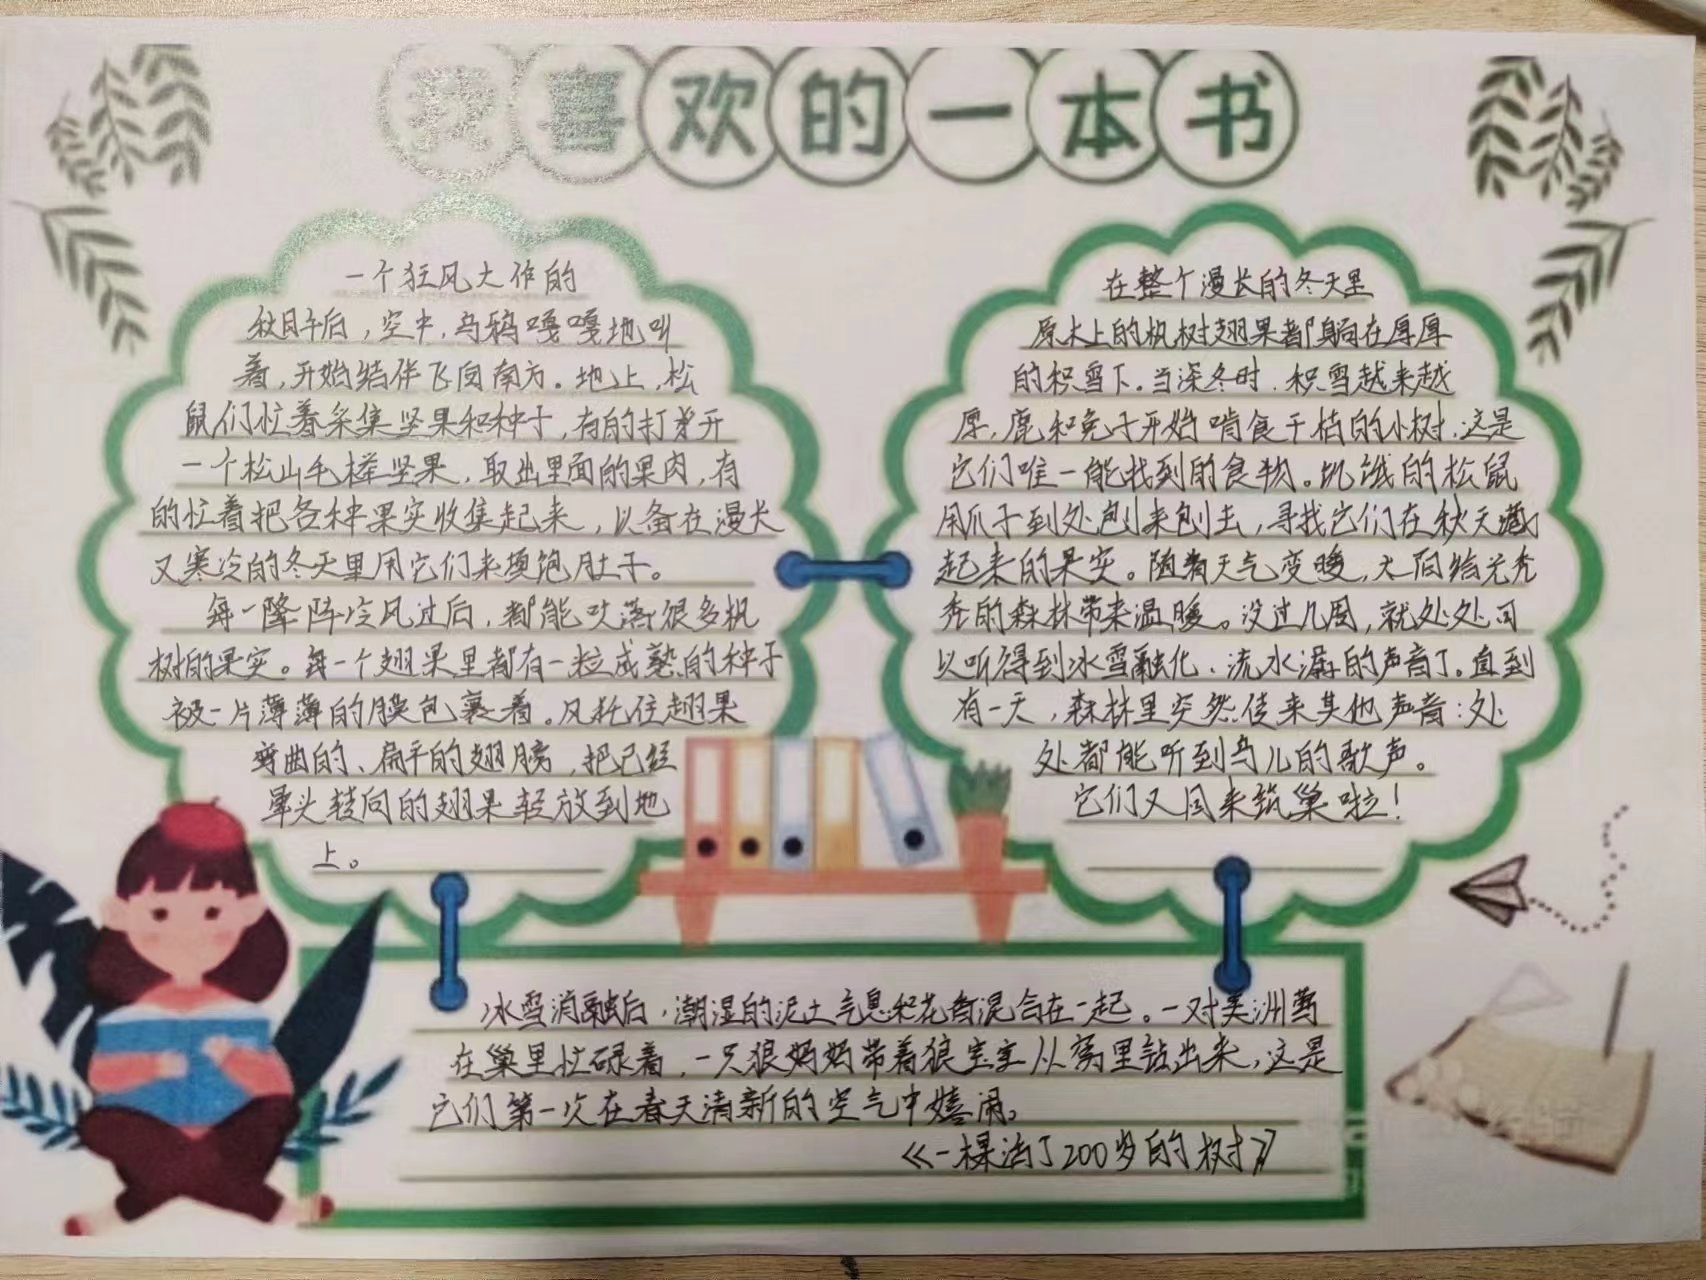 我喜欢的一本书
一个狂风大作的
秋日午后，空中，乌鸦嘎嘎地叫
着，开始结伴飞回南方。地上，松
鼠们忙着采集坚果和种子，有的打开
一个松山毛榉坚果，取出里面的果肉，有
的忙着把各种果实收集起来，以备在漫长
又寒冷的冬天里用它们来填饱肚子。
每一阵冷风过后，都能吹落很多枫
树的果实。每一个翅果里都有一粒成熟的种子
被一片薄薄的膜包裹着。风托住翅果
弯曲的、扁平的翅膀，把已经
晕头转向的翅果轻放到地
上。
在整个漫长的冬天里
原木上的枫树翅果都躺在厚厚
的积雪下。当深冬时，积雪越来越
厚，鹿和兔子开始啃食干枯的小树，这是
它们唯一能找到的食物。饥饿的松鼠
用爪子到处刨来刨去，寻找它们在秋天藏
起来的果实。随着天气变暖，太阳给光秃
秃的森林带来温暖。没过几周，就处处可
以听得到冰雪融化、流水潺潺的声音了。直到
有一天，森林里突然传来其他声音：处
处都能听到鸟儿的歌声。
它们又回来筑巢啦！
冰雪消融后，潮湿的泥土气息和花香混合在一起。一对美洲莺
在巢里忙碌着，一只狼妈妈带着狼宝宝从窝里钻出来，这是
它们第一次在春天清新的空气中嬉闹。
《一棵活了200岁的树》